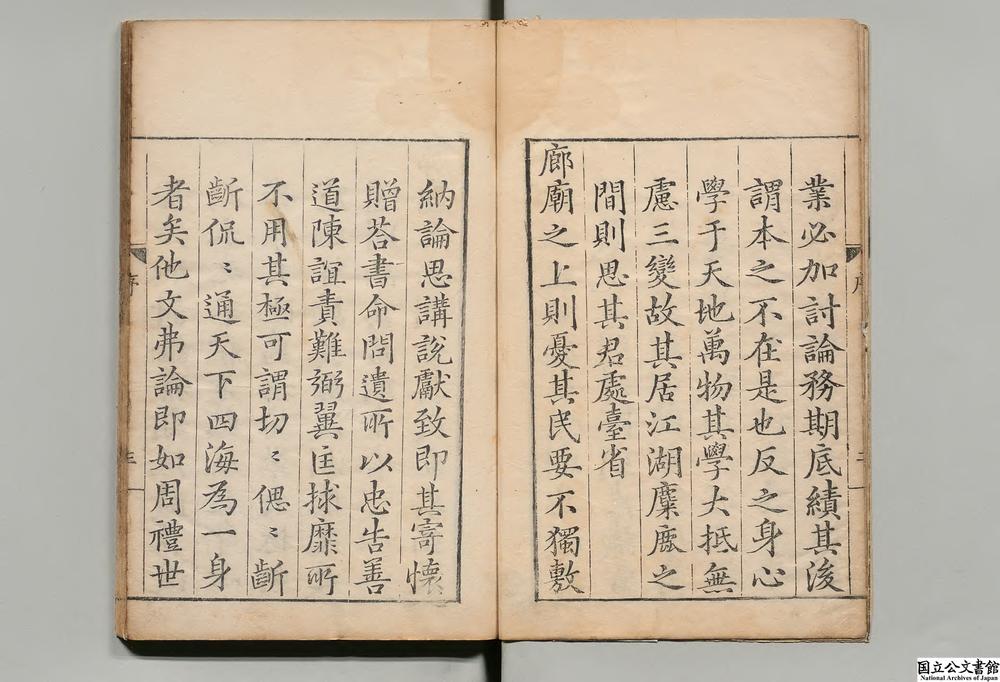 業必加討論務期底績其後
謂本之不在是也反之身心
學于天地萬物其學大抵無
慮三變故其居江湖麋鹿之
間則思其君處臺省
廊廟之上則憂其民要不獨敷
納論思講說獻致即其寄懷
贈荅書命問遺所以忠告善
道陳誼責難弼翼匡捄靡所
不用其極可謂切〻偲〻齗
齗侃〻通天下四海為一身
者矣他文弗論即如周禮世
序
三
国立公文書館
National Archives of Japan